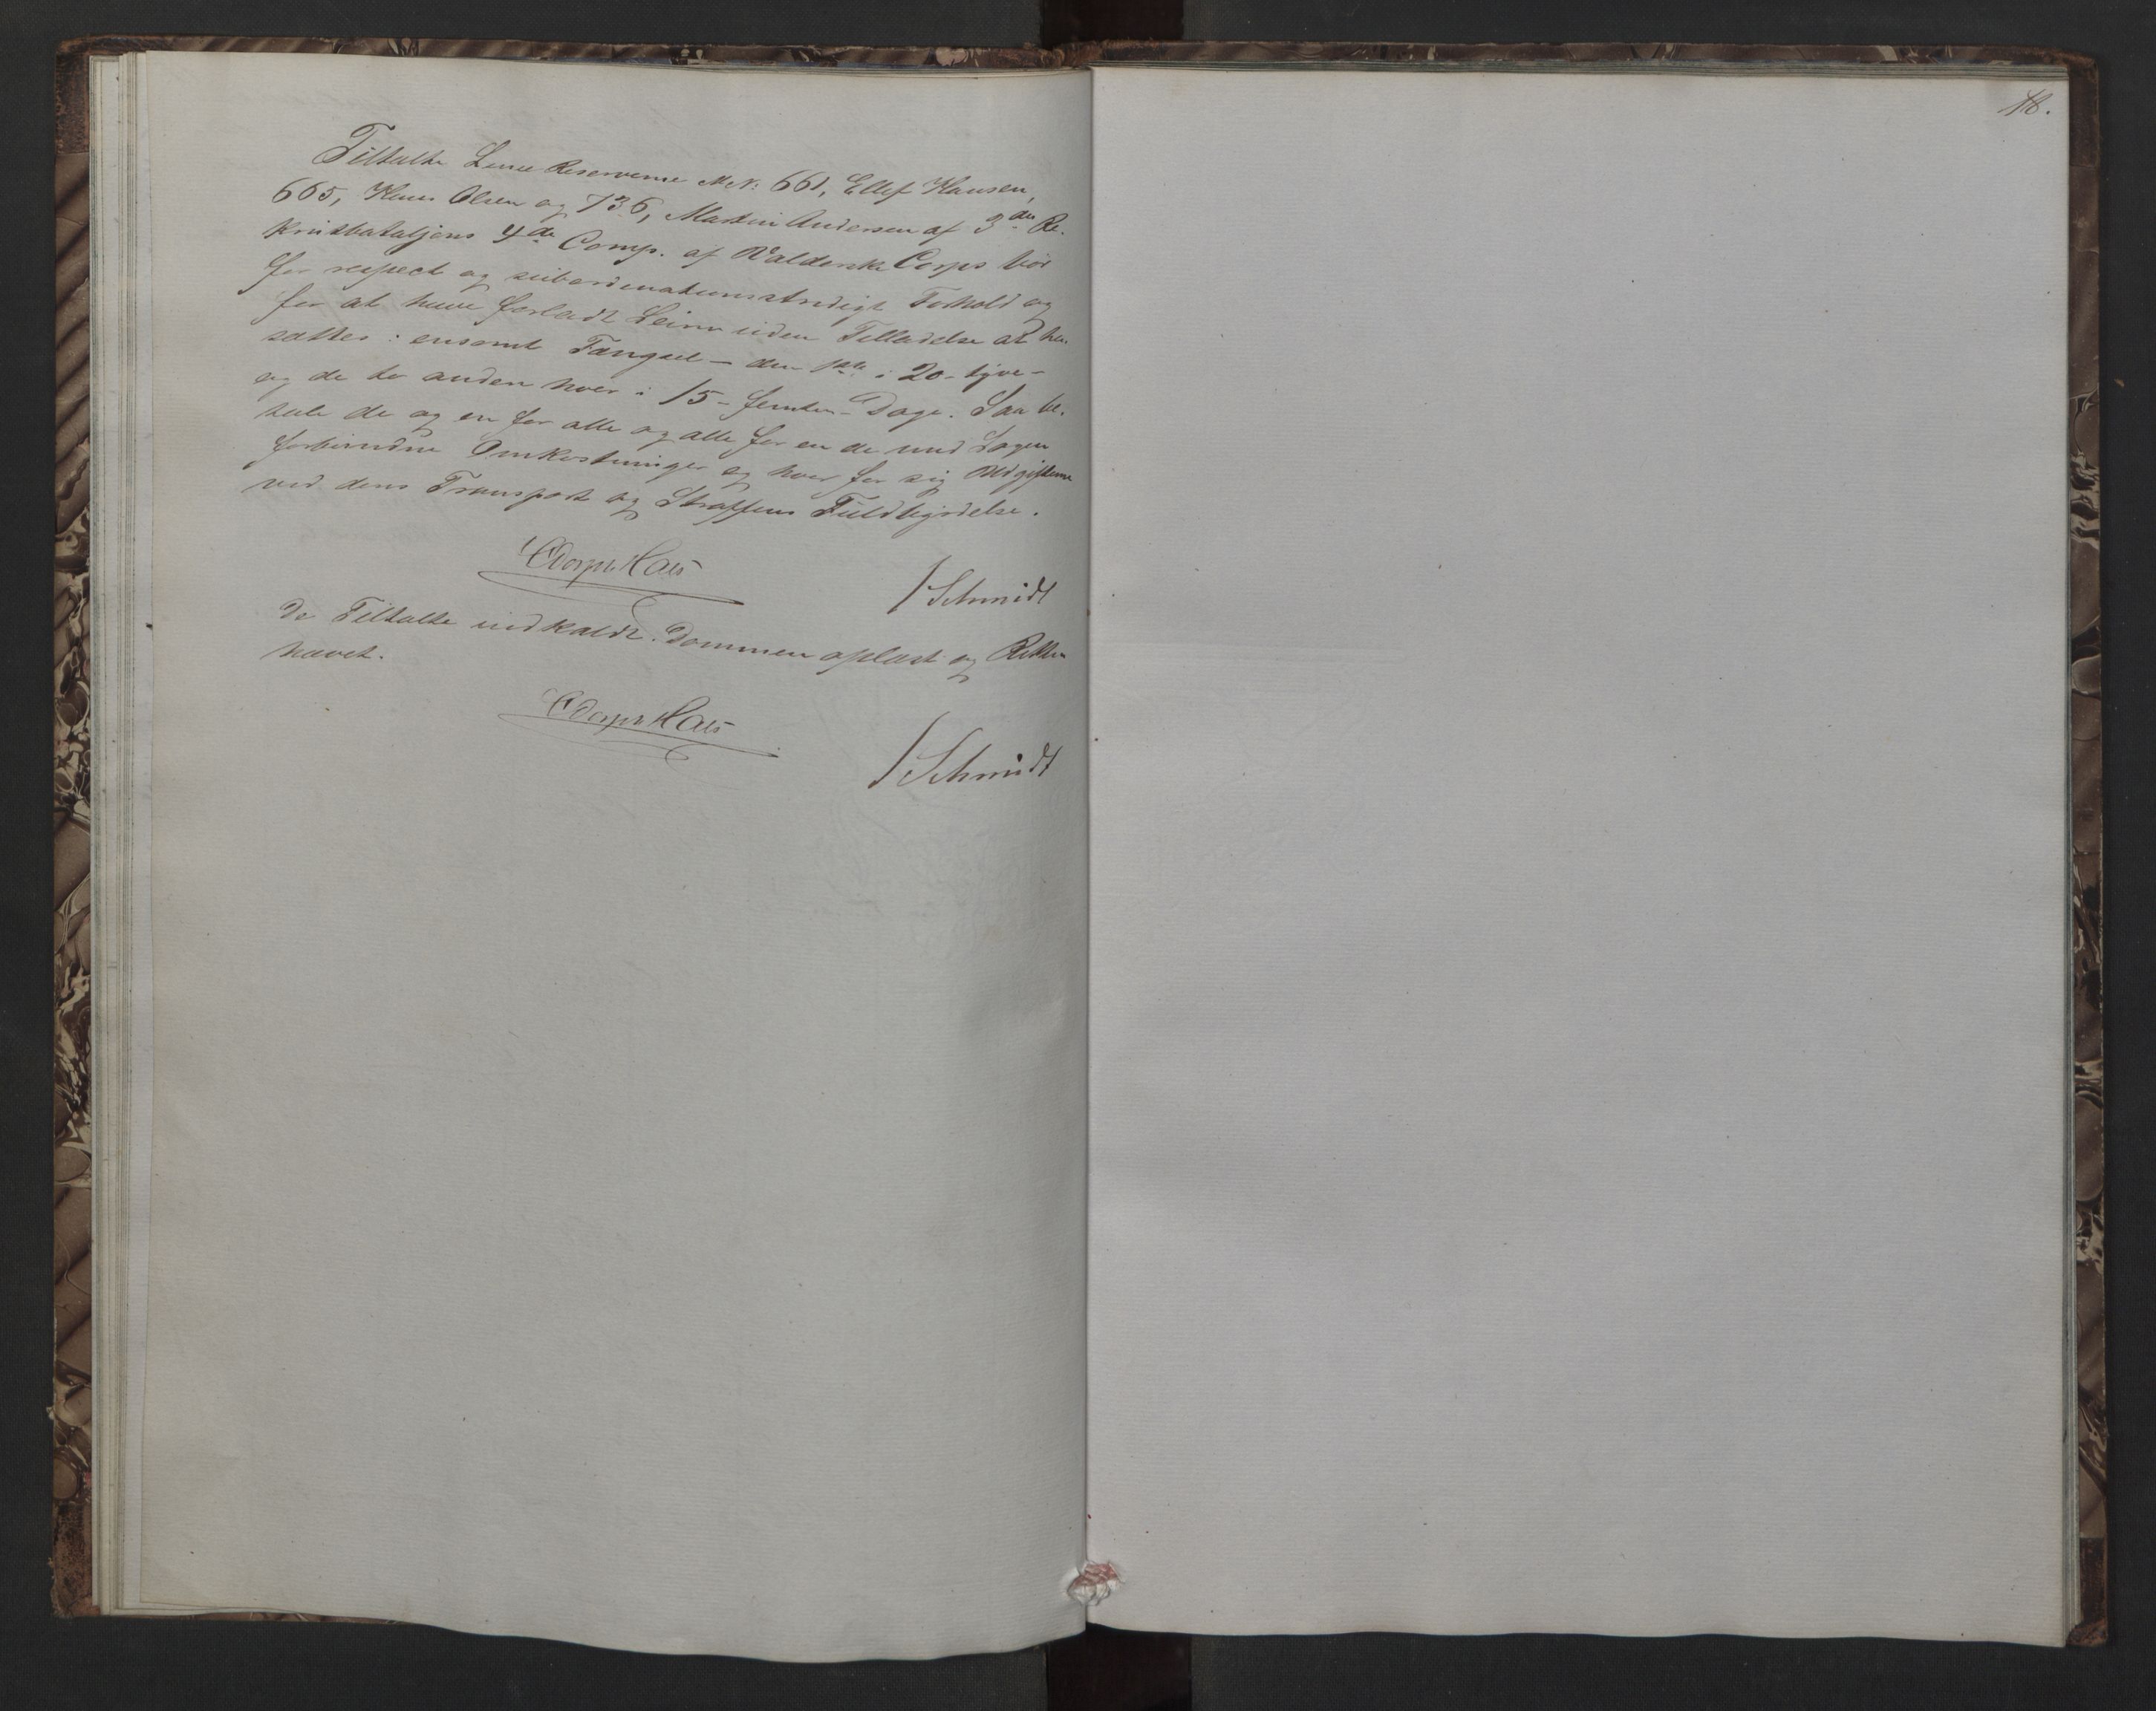 18.
Tiltalte Linie Reserverne M N: 661, Ellef Hansen,
665, Hans Olsen og 736, Martin Andersen af 3die Re-
krutbataljons 4de Comp. af Valderske Corps bør
for respect og subordinationsstridigt Forhold og
for at have forladt Leiren uden Tilladelse at hen-
sættes i ensomt Fængsel – den 1ste i 20 – tyve –
og de to anden hver i 15 – femten – Dage. Saa be-
tale de og en for alle og alle for en de med Sagen
forbundne Omkostninger og hver for sig Udgifterne
ved deres Transport og Straffens Fuldbyrdelse.
Schmidt
De Tiltalte indkaldt. Dommen oplæst og Retten
hævet.
Schmidt